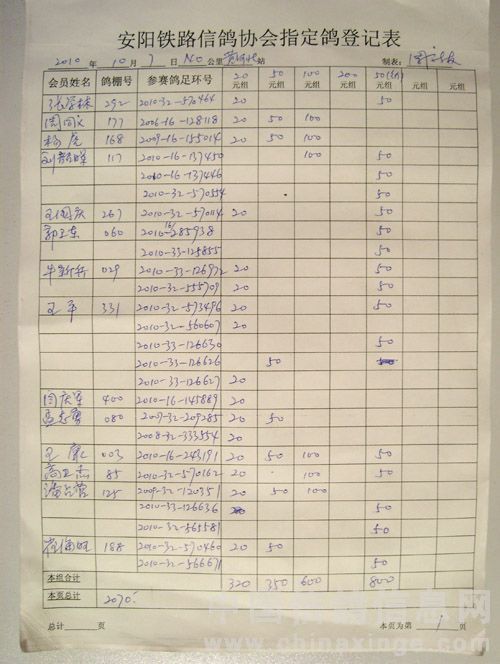 安阳铁路信鸽协会指定鸽登记表
2010 年 10 月 7 日 140 公里 站 制表:
会员姓名 鸽棚号 参赛鸽足环号 20元组 50元组 100元组 200元组 50(幼)元组 元组 元组
292 2010-32-570464 20 50
周国义 177 2006-16-128118 20 50 100
杨虎 168 2009-16-155014 20 50 100
117 2010-16-137450 100 50
2010-16-137446 50
2010-32-570554 50
王国庆 267 2010-32-570114 20 50
郭玉东 060 2010-16-285938 50
2010-33-125855 50
029 2010-33-126972 20 50
2010-32-555709 20 50
王平 331 2010-32-573496 20 50
2010-32-560607 20
2010-33-126630 50
2010-33-126626 50
2010-33-126627 20
闫庆军 400 2010-16-145889 20
孟志勇 080 2009-32-209285 20 50
2008-32-333554 20
王宽 003 2010-16-243191 20 50 100 50
高卫杰 85 2010-32-570162 20 100 50
125 2009-32-120351 20 50 100
2010-33-126636 50
2010-32-565581 50
188 2010-32-570460 20 50
2010-32-566671 50
本组合计 320 350 600 800
本页总计 2070
总计 页 本页为第 1 页
中国信鸽信息网
www.chinaxinge.com